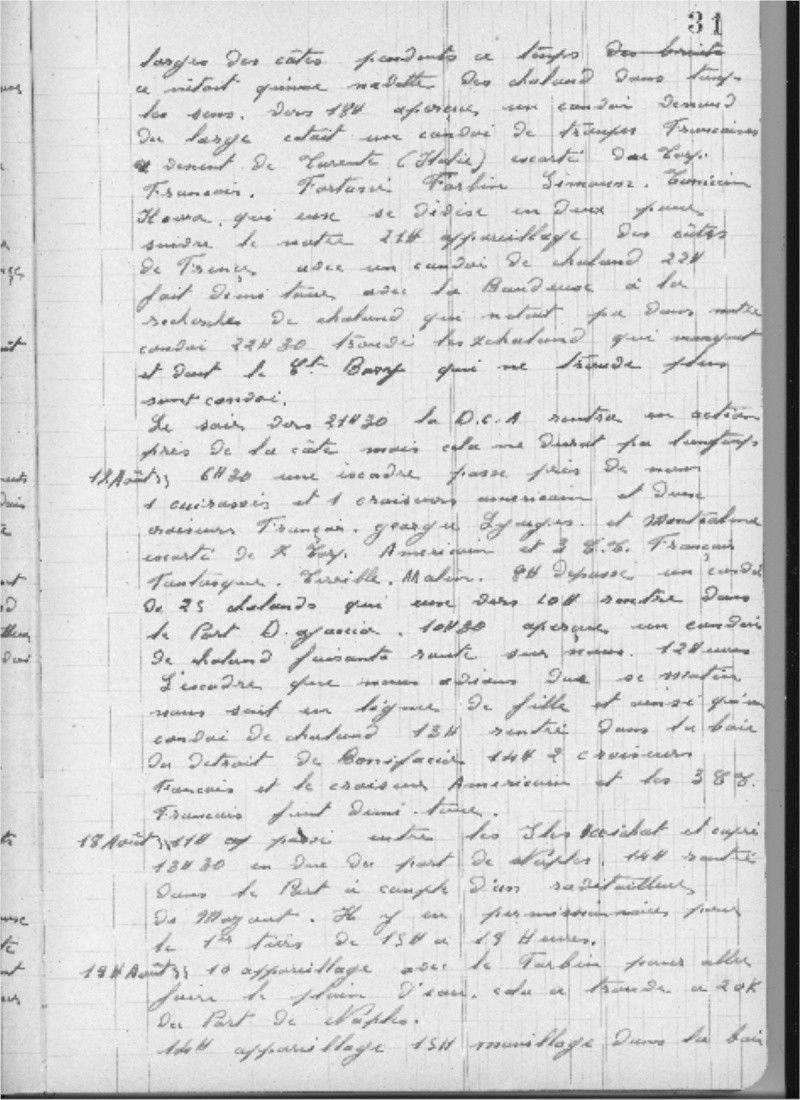 31
larges des côtes pendents ce temps des bruits
ce nétait quune navette des chaland dans tous
les sens. Vers 18H aperçus un convoi venend
du large cétait un convoi de troupes Francaises
venent de Tarente (Italie) escorté des Torp.
Francais. Fortuné Forbin Simoun. Tunisien
Hova. qui eux se divise en deux pour
suivre le notre 21H appareillage des côtes
de France avec un convoi de chaland 22H
fait demi tour avec la Boudeuse à la
recherches de chaland qui nétait pa dans notre
convoi 22H30 trouvé les chaland qui manquent
et dont le Bory qui ne trouve plus
sont convoi.
Le soir vers 21H30 la D.C.A rentra en action
près de la côte mais cela ne durat pa longtemps
17 Août 6H30 une escadre passe près de nous
1 cuirassés et 1 croiseurs americain et deux
croiseurs Français. georges Lyques. et Montcalme
escorté de Torp. Americain et 3 C.T. Français
Fantasque. Terrible. Malin. 8H Depassé un convoi
de 25 chalands qui eux vers 10H rentre dans
le Port D. ajaccio. 10H30 aperçus un convoi
de chaland faisants route sur nous. 12Heures
L'escadre que nous avions vue se matin
nous suit en ligne de fille et ainsi qu'un
convoi de chaland 13H rentré dans la baie
du detroit de Bonifacio 14H 2 croiseurs
Francais et le croiseur Americain et les 3 C.T.
Francais font demi-tour.
18 Août 11H passé entre les Iles et capri
13H30 en vue du port de Naples. 14H rentré
dans le Port a couple d'un ravitailleur
de Mazout. Il y eu permissionnaires pour
le 1er tiers de 15H a 19 Heures.
19 Août 10 appareillage avec le Forbin pour aller
faire le plein d'eau. cela a trouve a 20K
du Port de Naples.
14H appareillage 15H mouillage dans la baie